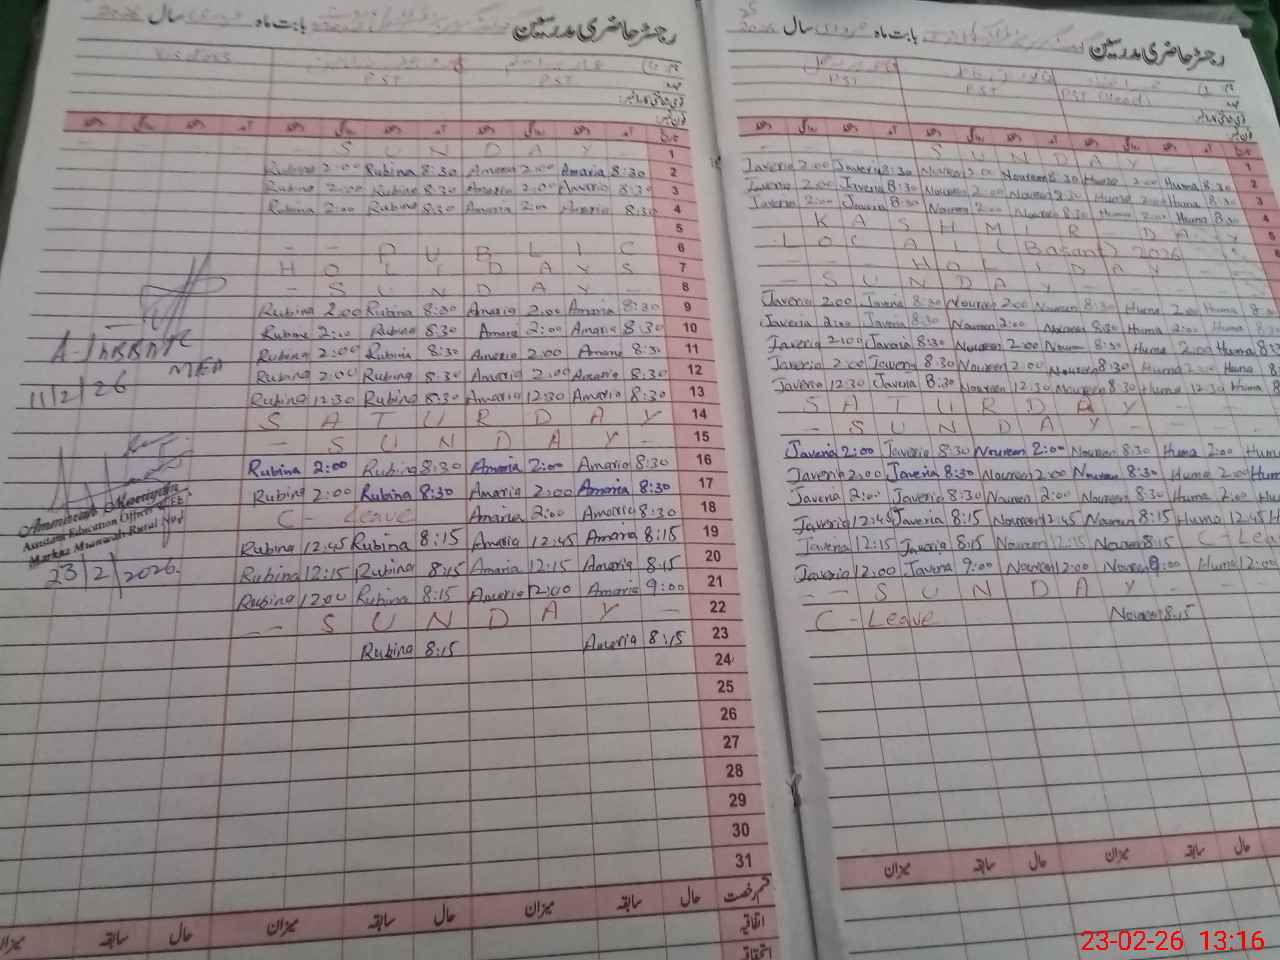 رجسٹر حاضری مدرسین بابت ماہ سال 2026
Visitors
PST PST
تاریخ
S U N D A Y 1
Rubina 2:00 Rubina 8:30 Amaria 2:00 Amaria 8:30 2
Rubina 2:00 Rubina 8:30 Amaria 2:00 Amaria 8:30 3
Rubina 2:00 Rubina 8:30 Amaria 2:00 Amaria 8:30 4
5
- - P U B L I C 6
H O L I D A Y S 7
- S U N D A Y 8
Rubina 2:00 Rubina 8:30 Amaria 2:00 Amaria 8:30 9
Rubina 2:00 Rubina 8:30 Amaria 2:00 Amaria 8:30 10
Rubina 2:00 Rubina 8:30 Amaria 2:00 Amaria 8:30 11
Rubina 2:00 Rubina 8:30 Amaria 2:00 Amaria 8:30 12
Rubina 12:30 Rubina 8:30 Amaria 12:30 Amaria 8:30 13
S A T U R D A Y 14
- S U N D A Y - 15
Rubina 2:00 Rubina 8:30 Amaria 2:00 Amaria 8:30 16
Rubina 2:00 Rubina 8:30 Amaria 2:00 Amaria 8:30 17
C - Leave Amaria 2:00 Amaria 8:30 18
Rubina 12:45 Rubina 8:15 Amaria 12:45 Amaria 8:15 19
Rubina 12:15 Rubina 8:15 Amaria 12:15 Amaria 8:15 20
Rubina 12:00 Rubina 8:15 Amaria 12:00 Amaria 9:00 21
- - S U N D A Y - 22
Rubina 8:15 Amaria 8:15 23
24
25
26
27
28
29
30
31
میزان سابقہ حال میزان سابقہ حال قسم رخصت
اتفاقیہ
MEA
11/2/26
Assistant Education Officer
23/2/2026
رجسٹر حاضری مدرسین بابت ماہ سال 2026
PST PST PST (Head)
تاریخ
- S U N D A Y 1
Javeria 2:00 Javeria 8:30 Noureen 2:00 Noureen 8:30 Huma 2:00 Huma 8:30 2
Javeria 2:00 Javeria 8:30 Noureen 2:00 Noureen 8:30 Huma 2:00 Huma 8:30 3
Javeria 2:00 Javeria 8:30 Noureen 2:00 Noureen 8:30 Huma 2:00 Huma 8:30 4
K A S H M I R D A Y 5
L O C A L (Basant) 2026
- - - H O L I D A Y - -
- S U N D A Y - -
Javeria 2:00 Javeria 8:30 Noureen 2:00 Noureen 8:30 Huma 2:00 Huma
Javeria 2:00 Javeria 8:30 Noureen 2:00 Noureen 8:30 Huma 2:00 Huma
Javeria 2:00 Javeria 8:30 Noureen 2:00 Noureen 8:30 Huma 2:00 Huma
Javeria 2:00 Javeria 8:30 Noureen 2:00 Noureen 8:30 Huma 2:00 Huma
Javeria 12:30 Javeria 8:30 Noureen 12:30 Noureen 8:30 Huma 12:30 Huma
S A T U R D A Y - -
- S U N D A Y - -
Javeria 2:00 Javeria 8:30 Noureen 2:00 Noureen 8:30 Huma 2:00
Javeria 2:00 Javeria 8:30 Noureen 2:00 Noureen 8:30 Huma 2:00
Javeria 2:00 Javeria 8:30 Noureen 2:00 Noureen 8:30 Huma 2:00
Javeria 12:45 Javeria 8:15 Noureen 12:45 Noureen 8:15 Huma 12:45
Javeria 12:15 Javeria 8:15 Noureen 12:15 Noureen 8:15 C - Lea
Javeria 12:00 Javeria 9:00 Noureen 12:00 Noureen 9:00 Huma 12:00
- - S U N D A Y - -
C - Leave Noureen 8:15
میزان سابقہ حال میزان سابقہ حال
23-02-26 13:16